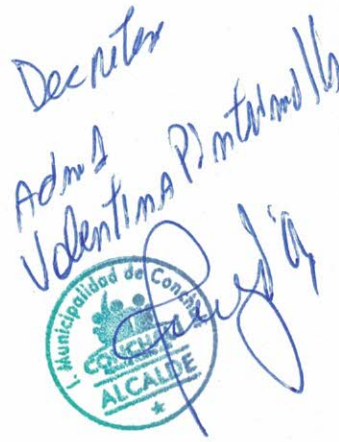 Decretar
Adm 1
Valentina Pintamalli
I. Municipalidad de Conchalí
CONCHALÍ
ALCALDE